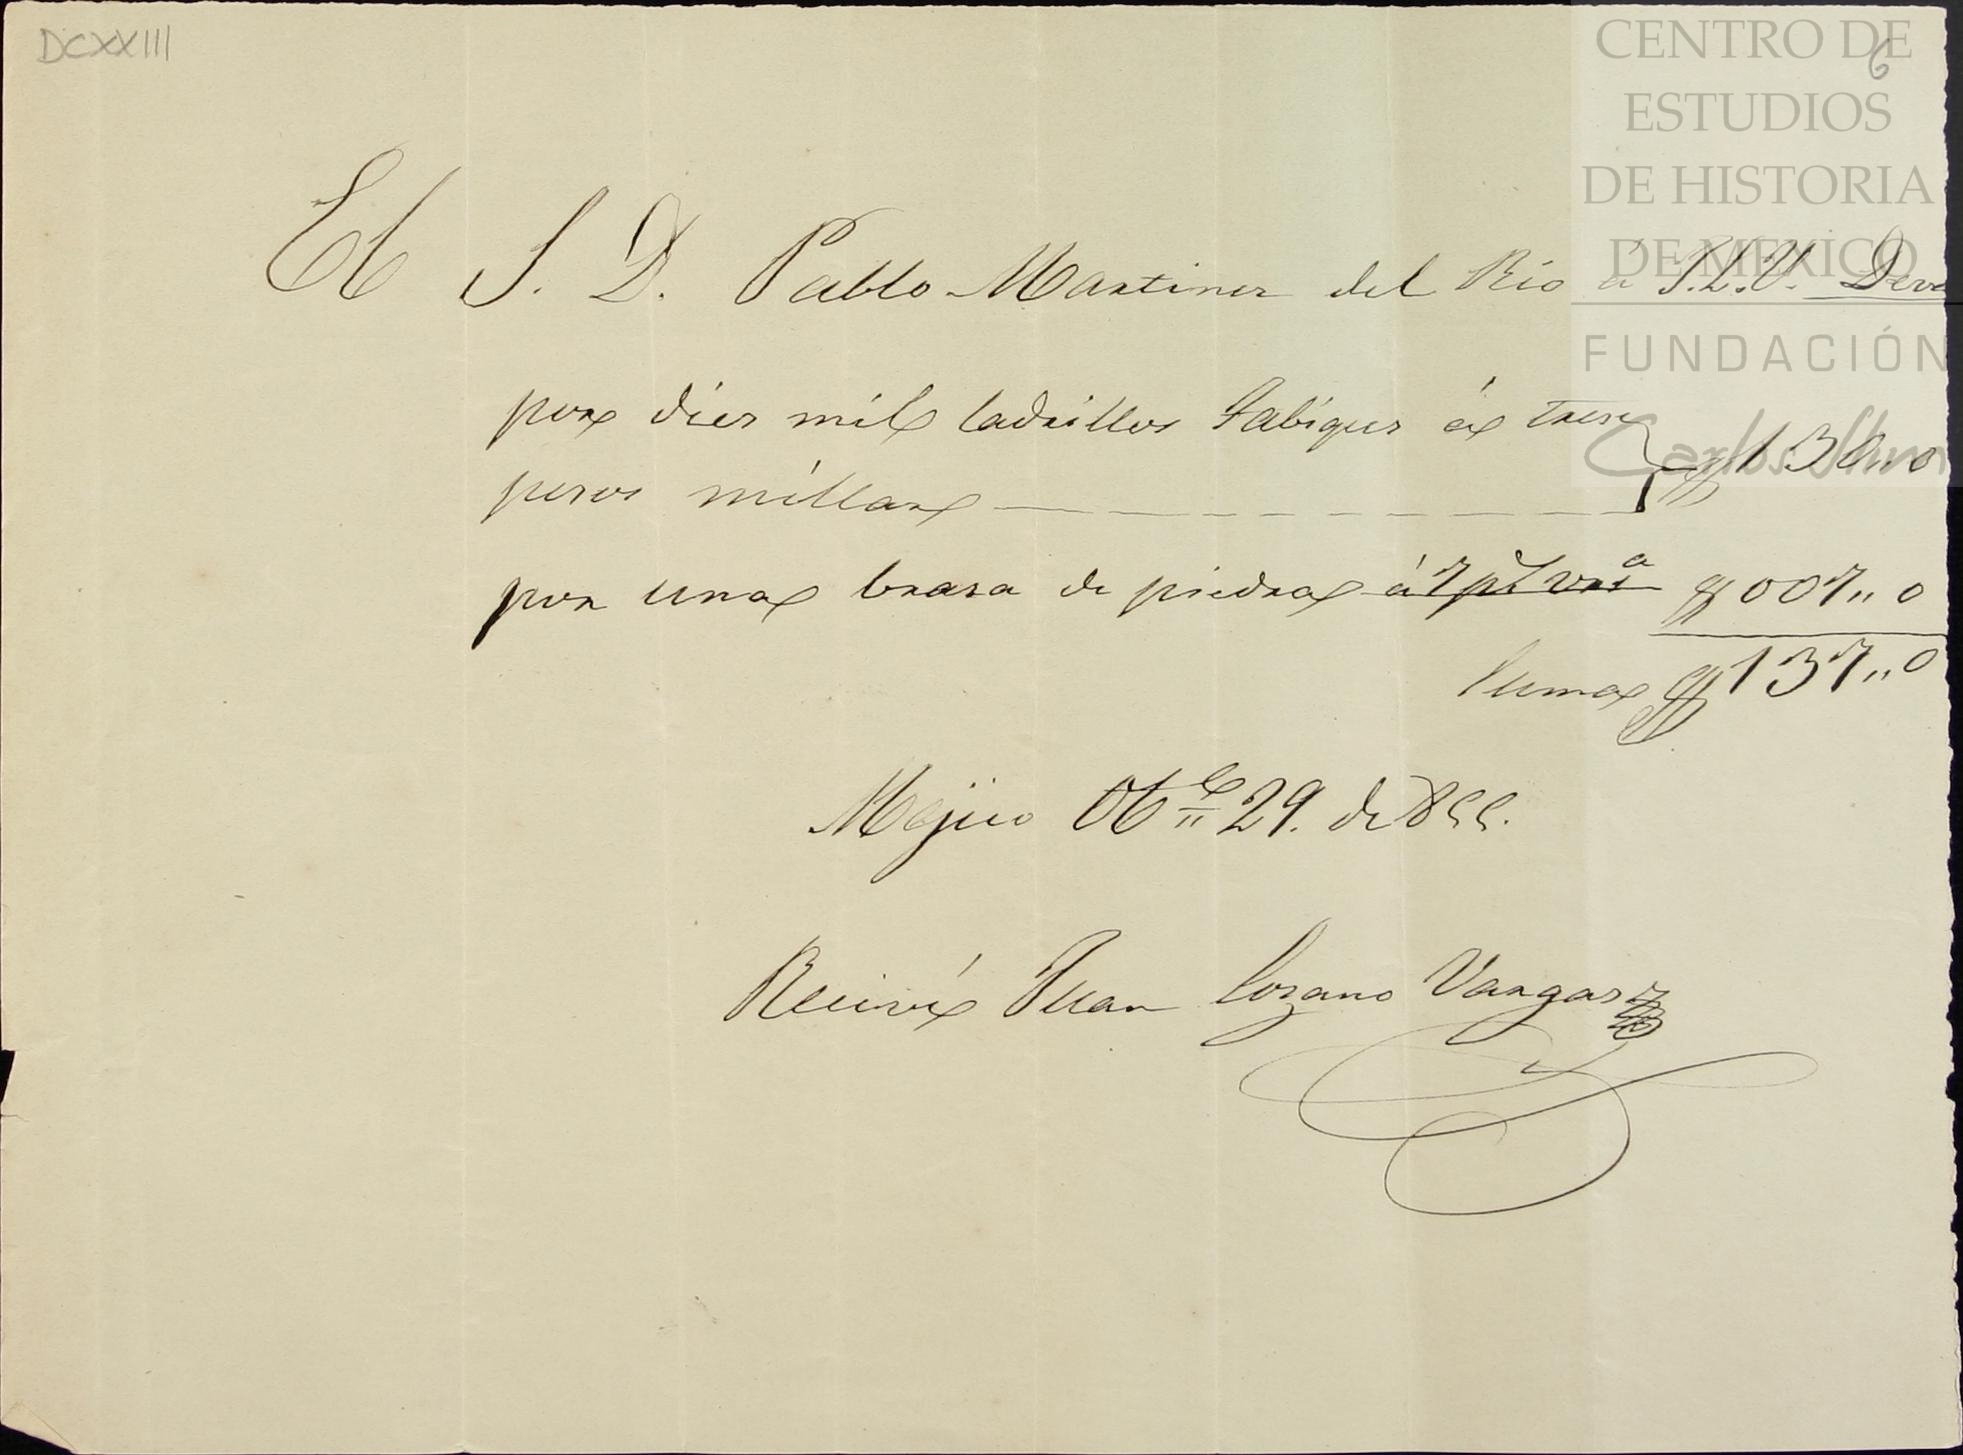 DCXXIII
6
CENTRO DE
ESTUDIOS
DE HISTORIA
DE MEXICO
FUNDACIÓN
Carlos Slim
El S. D. Pablo Martinez del Rio á J. L. V. Deve
por diez mil ladrillos tabiques á trese
pesos millar $130,,0
por una brasa de piedra á 7 ps $007,,0
suma $137,,0
Mejico Otbe 29. de 855.
Recivi Juan Lozano Vargas